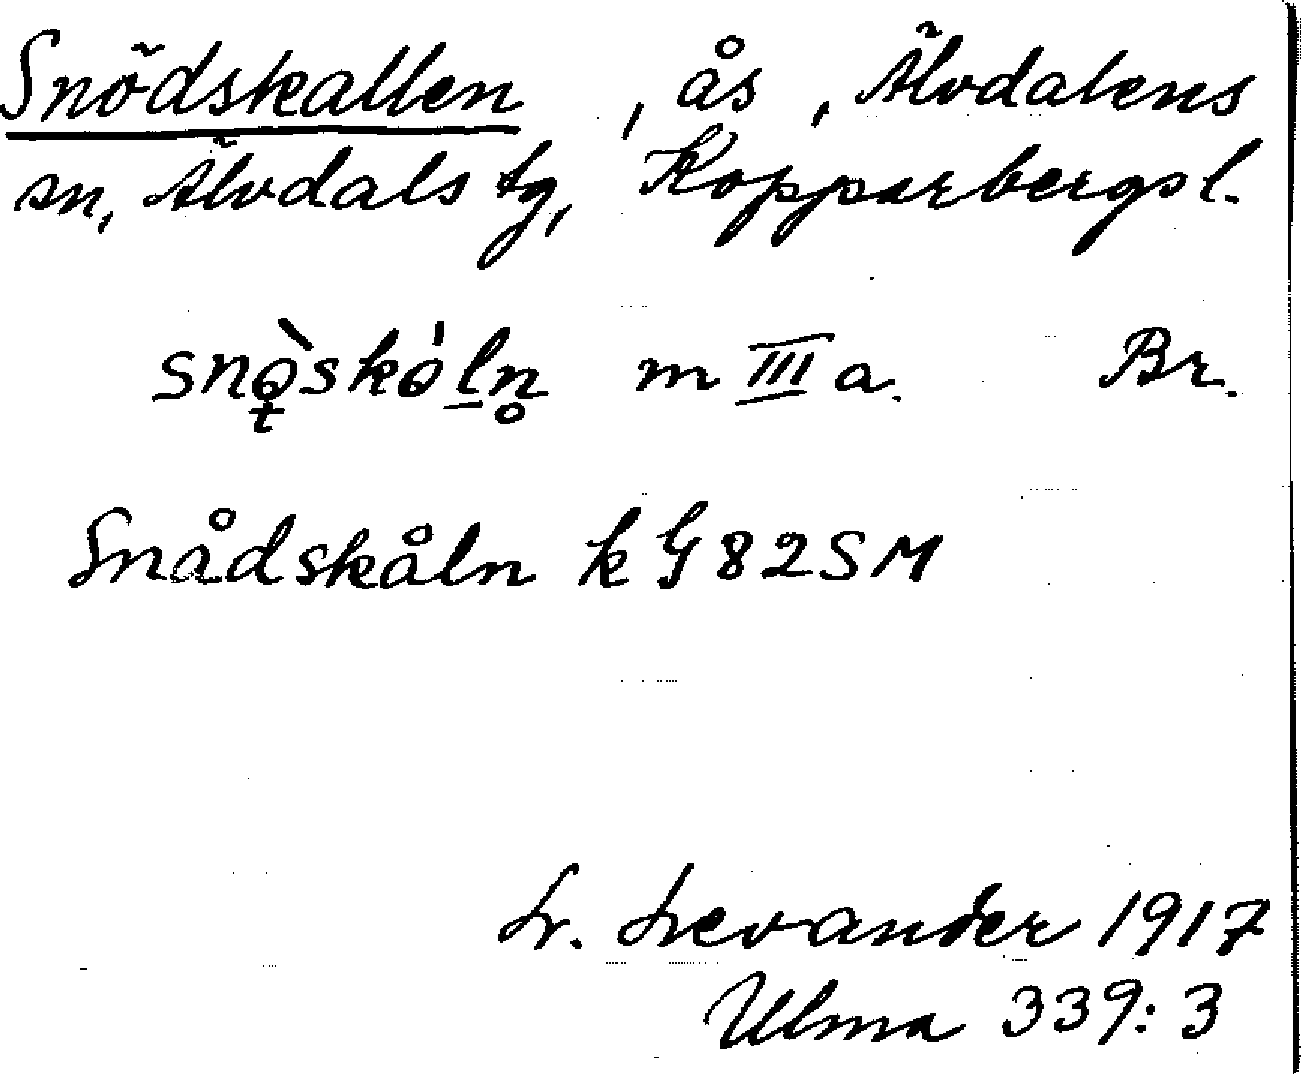 Snödskallen, ås, Älvdalens
sn, Älvdals tg, Kopparbergs l.
snò̞skó̱ln̥ m III a. Br.
Snådskåln k G 82 S M
L. Levander 1917
Ulma 339:3